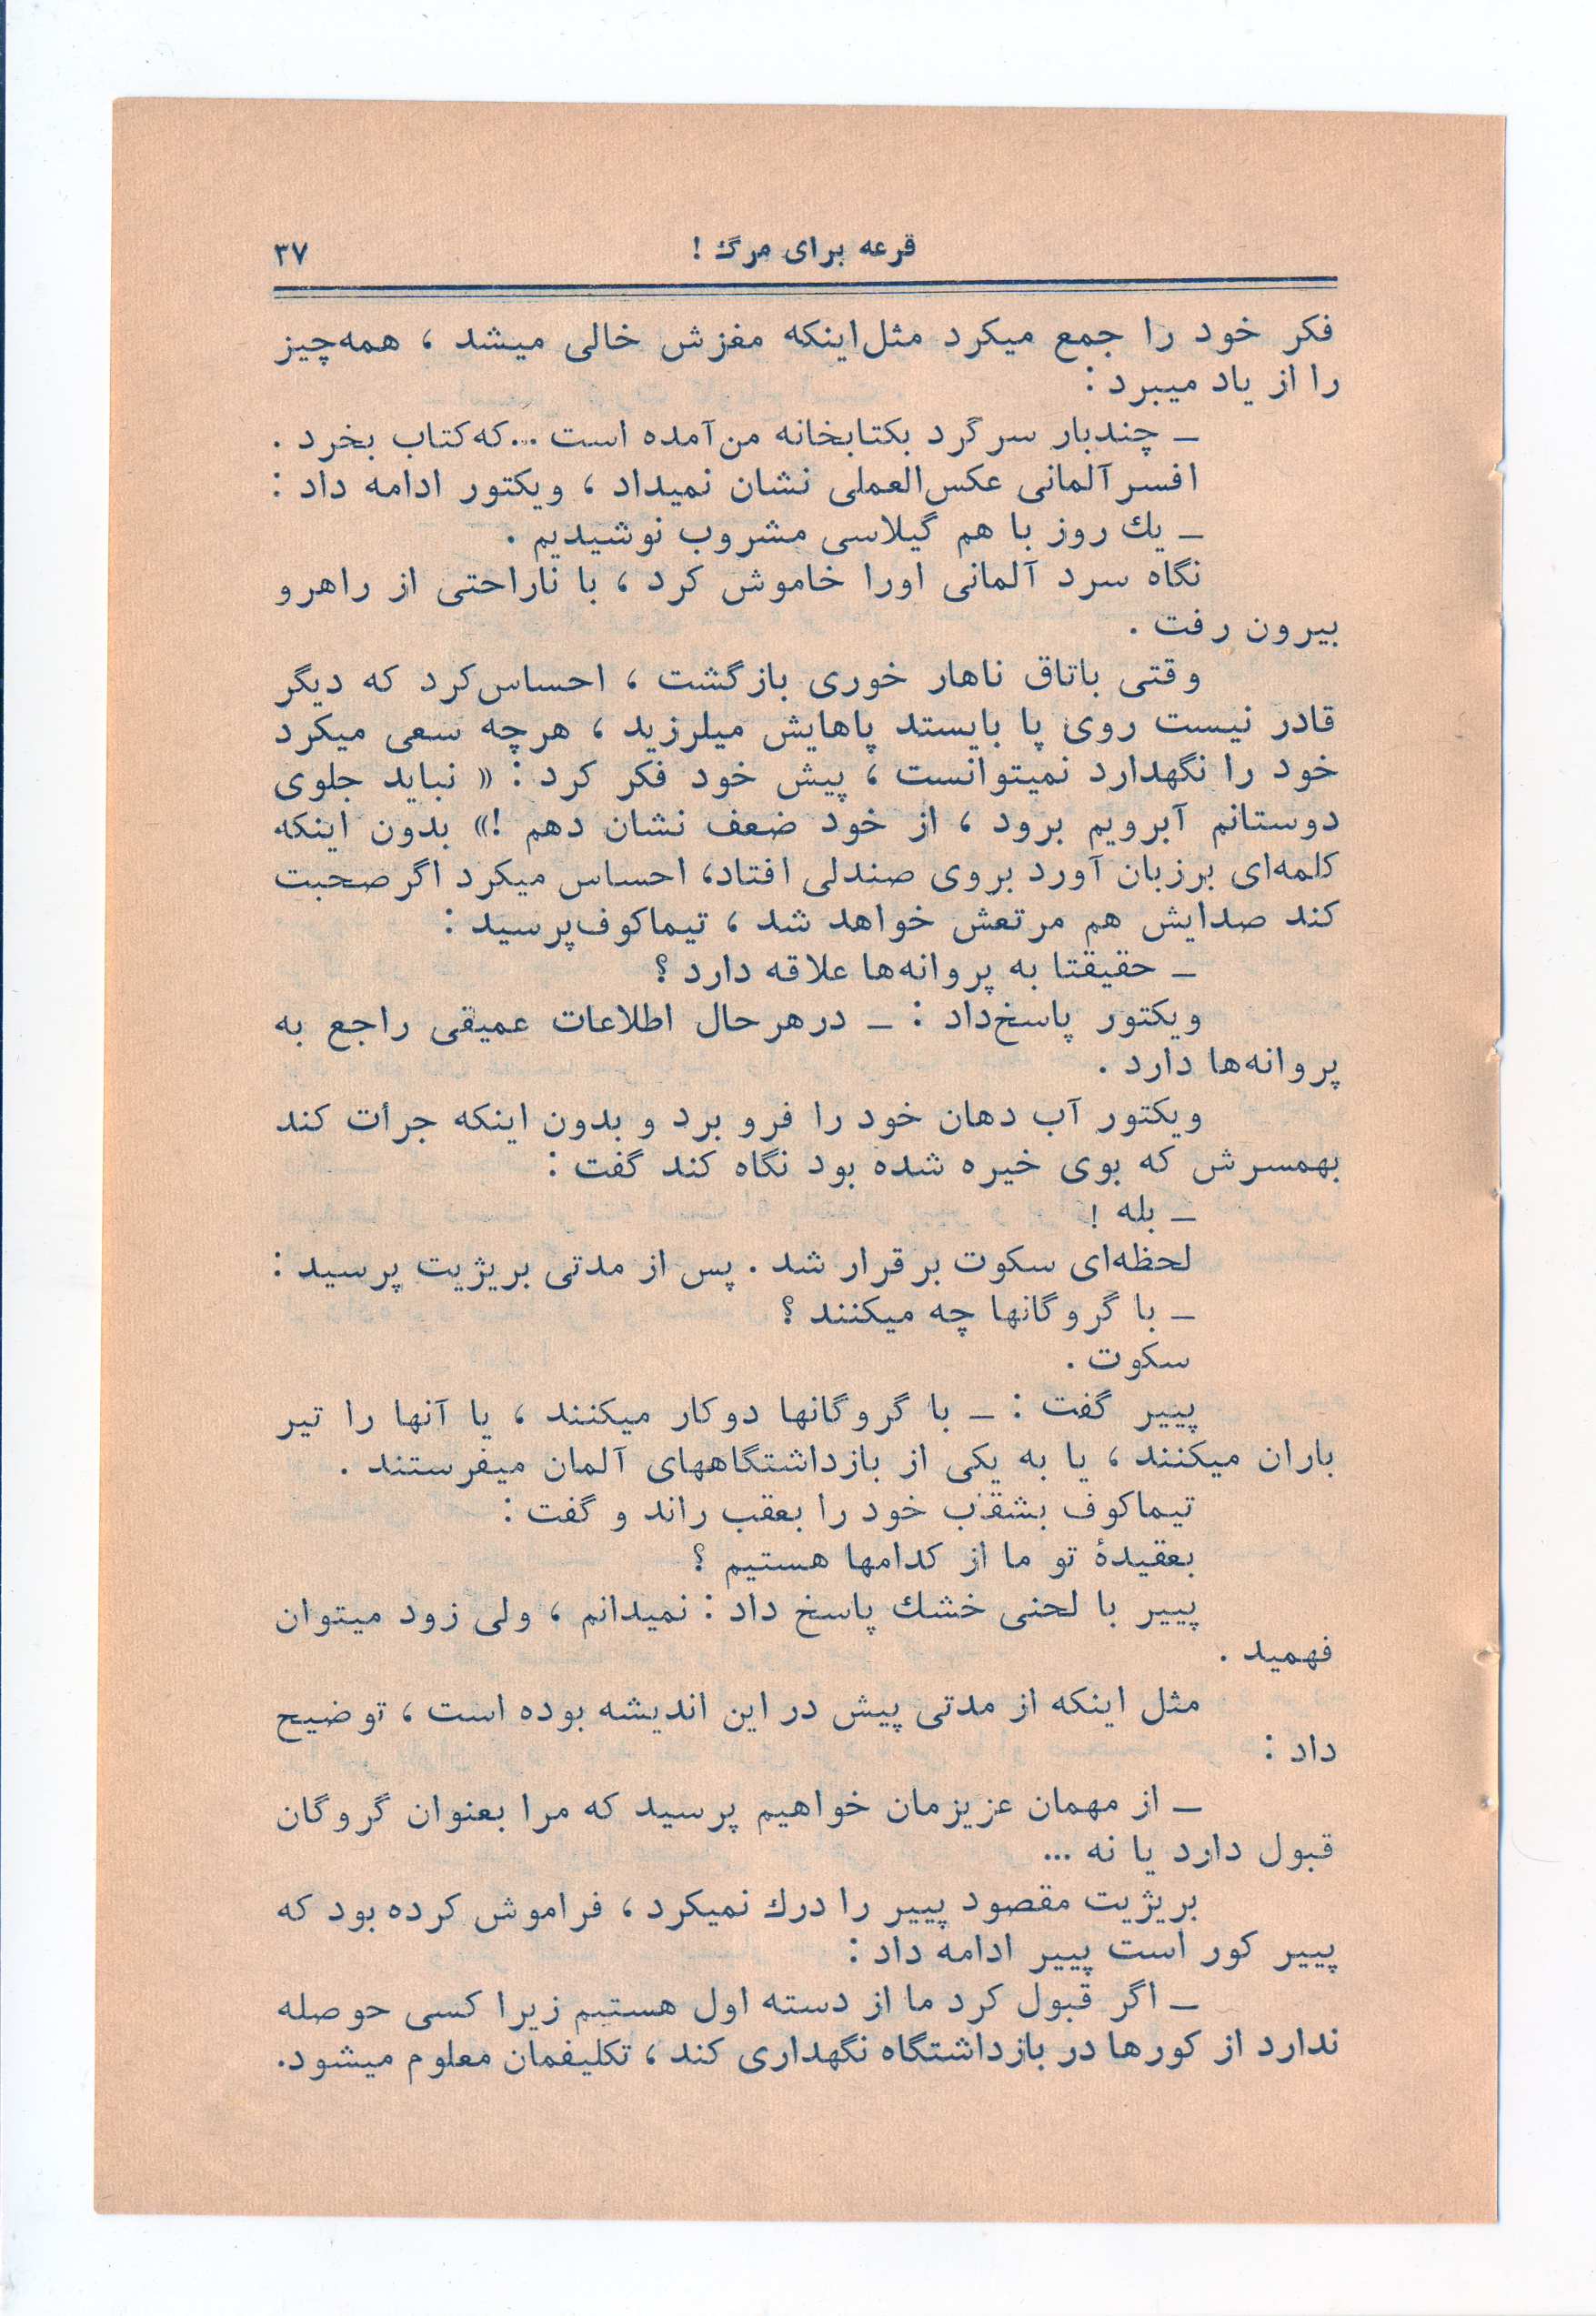 قرعه برای مرگ !
۳۷
فکر خود را جمع میکرد مثل‌اینکه مفزش خالی میشد ، همه‌چیز
را از یاد میبرد :
ـ چندبار سرگرد بکتابخانه من‌آمده است ...که‌کتاب بخرد .
افسرآلمانی عکس‌العملی نشان نمیداد ، ویکتور ادامه داد :
ـ یك روز با هم گیلاسی مشروب نوشیدیم .
نگاه سرد آلمانی اورا خاموش کرد ، با ناراحتی از راهرو
بیرون رفت .
وقتی باتاق ناهار خوری بازگشت ، احساس‌کرد که دیگر
قادر نیست روی پا بایستد پاهایش میلرزید ، هرچه سعی میکرد
خود را نگهدارد نمیتوانست ، پیش خود فکر کرد : « نباید جلوی
دوستانم آبرویم برود ، از خود ضعف نشان دهم !» بدون اینکه
کلمه‌ای برزبان آورد بروی صندلی افتاد، احساس میکرد اگرصحبت
کند صدایش هم مرتعش خواهد شد ، تیماکوف‌پرسید :
ـ حقیقتا به پروانه‌ها علاقه دارد ؟
ویکتور پاسخ‌داد : ـ درهرحال اطلاعات عمیقی راجع به
پروانه‌ها دارد .
ویکتور آب دهان خود را فرو برد و بدون اینکه جرأت کند
بهمسرش که بوی خیره شده بود نگاه کند گفت :
ـ بله !
لحظه‌ای سکوت برقرار شد . پس از مدتی بریژیت پرسید :
ـ با گروگانها چه میکنند ؟
سکوت .
پییر گفت : ـ با گروگانها دوکار میکنند ، یا آنها را تیر
باران میکنند ، یا به یکی از بازداشتگاههای آلمان میفرستند .
تیماکوف بشقاب خود را بعقب راند و گفت :
بعقیدهٔ تو ما از کدامها هستیم ؟
پییر با لحنی خشك پاسخ داد : نمیدانم ، ولی زود میتوان
فهمید .
مثل اینکه از مدتی پیش در این اندیشه بوده است ، توضیح
داد :
ـ از مهمان عزیزمان خواهیم پرسید که مرا بعنوان گروگان
قبول دارد یا نه ...
بریژیت مقصود پییر را درك نمیکرد ، فراموش کرده بود که
پییر کور است پییر ادامه داد :
ـ اگر قبول کرد ما از دسته اول هستیم زیرا کسی حوصله
ندارد از کورها در بازداشتگاه نگهداری کند ، تکلیفمان معلوم میشود.